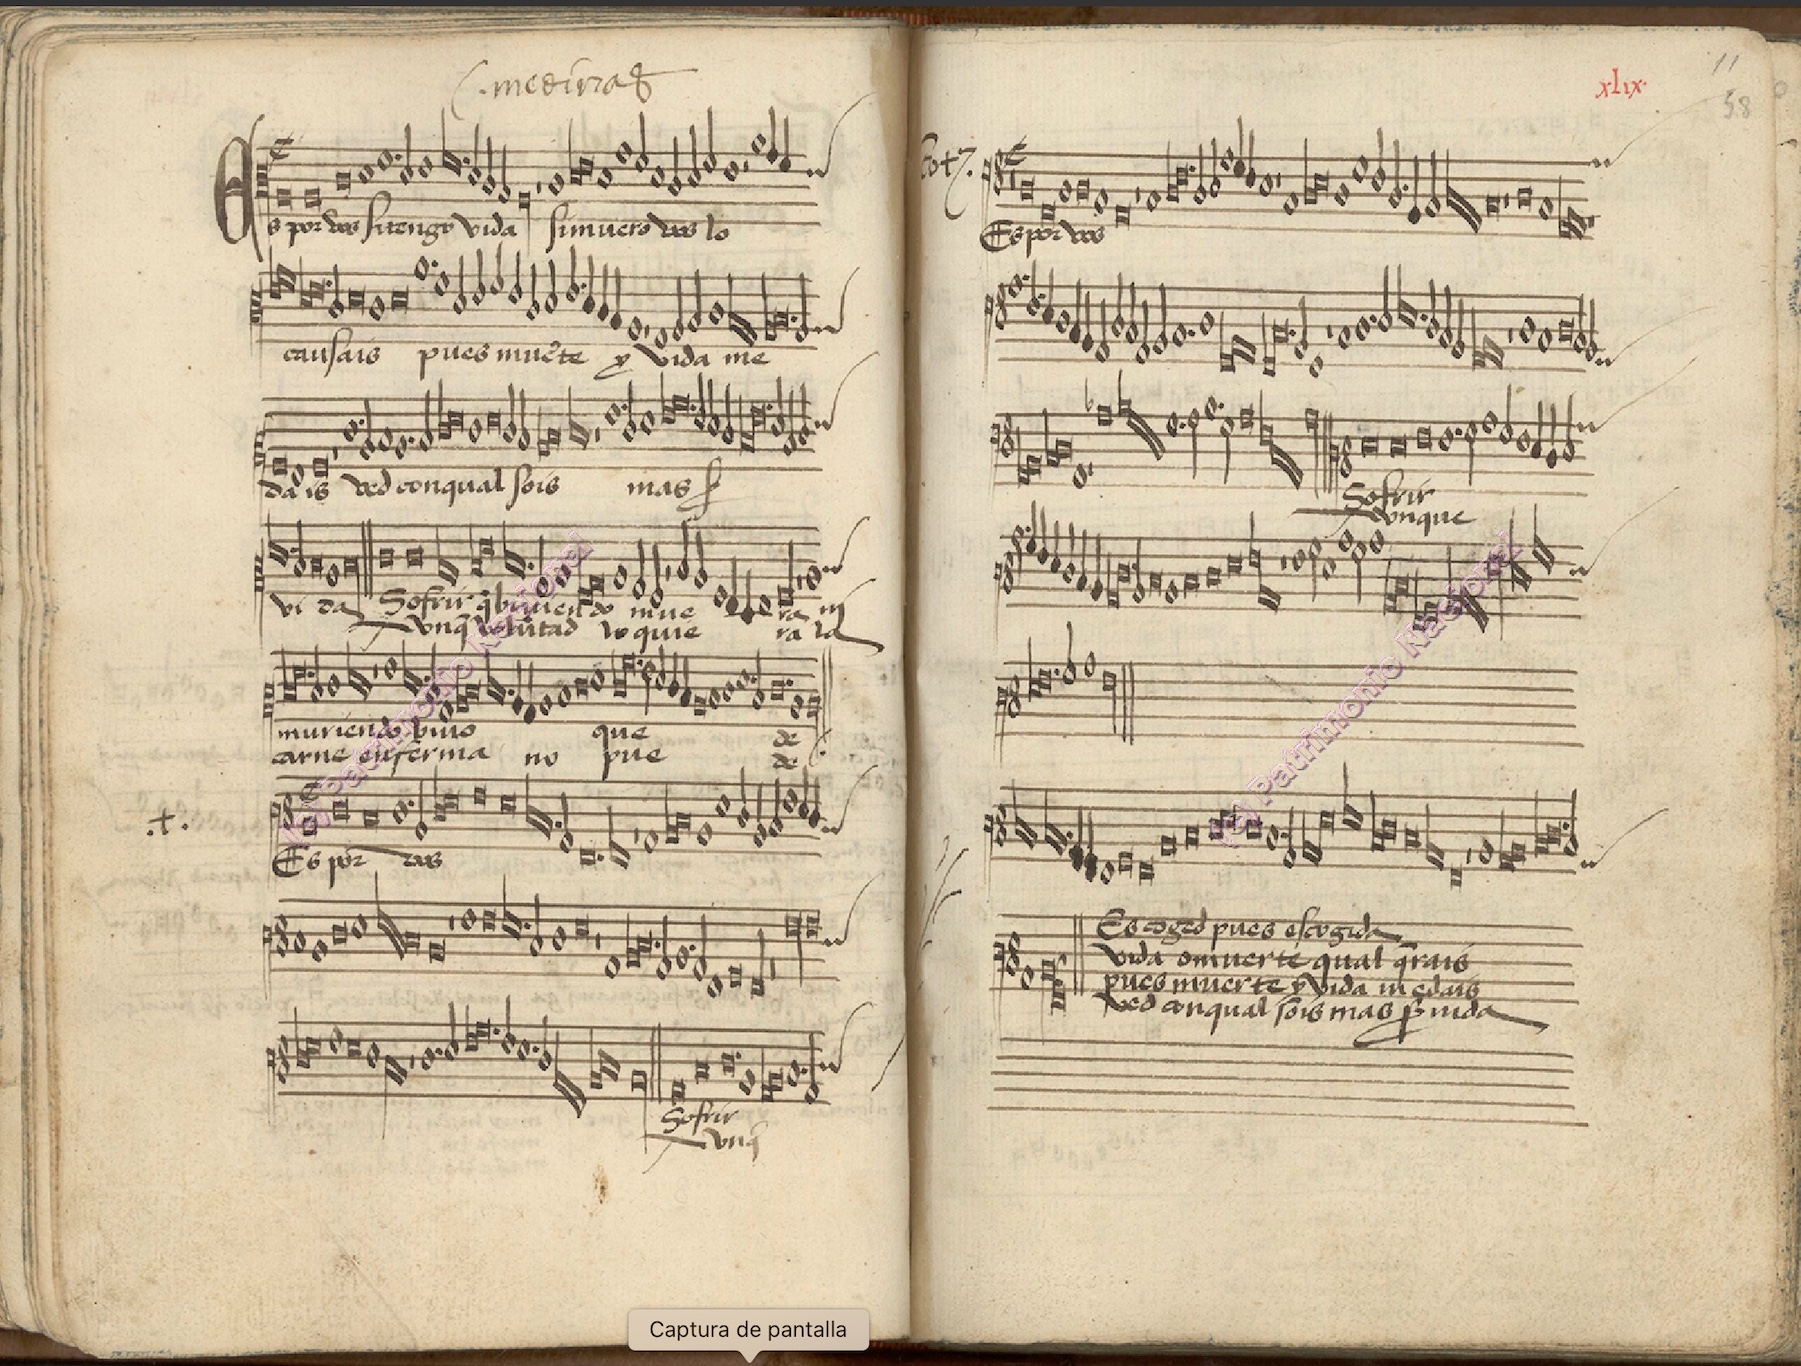 medinas
Es por vos si tengo vida si muero vos lo
causais pues muẽte y vida me
da is ved con qual sois mas
vi da Sofrir q̃ biuiendo mue ra ni
vnq̃ volũtad lo quie ra la
muriendo biuo que de
carne enferma no pue de
.t.
Es por vos
Sofrir
vnq̃
xlix
11
58
Es por vos
Sofrir
vnque
Escoged pues escogida
vida o muerte qual q̃rais
pues muerte y vida me dais
ved con qual sois mas uida
Real Patrimonio Nacional
Captura de pantalla